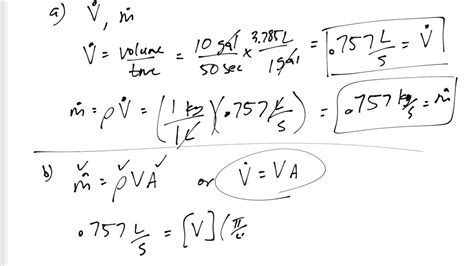 a) V̇, ṁ
V̇ = volume/time = 10 gal/50 sec × 3.785L/1gal = .757 L/s = V̇
ṁ = ρV̇ = (1 kg/1L)(.757 L/s) = .757 kg/s = ṁ
b) ṁ = ρVA or V̇ = VA
.757 L/s = [V](π/4